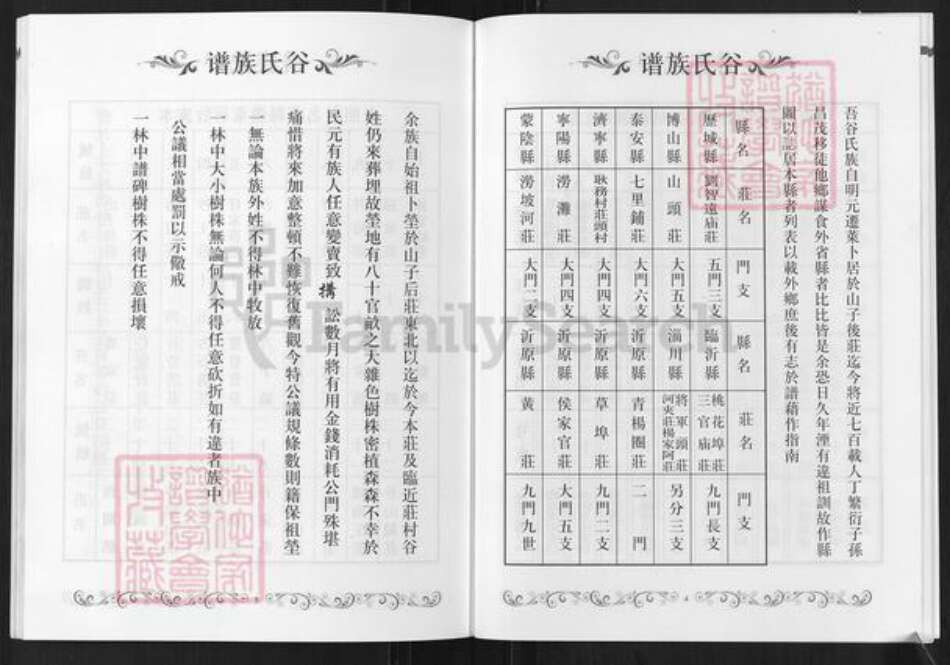 谱族氏谷
吾谷氏族自明元遷萊卜居於山子後莊迄今將近七百載人丁繁衍子孫
昌茂移徒他鄉謀食外省縣者比比皆是余恐日久年湮有違祖訓故作縣
圖以誌居本縣者列表以載外鄉庶後有志於譜藉作指南
縣名 莊名 門支 縣名 莊名 門支
歷城縣 劉智遠庙莊 五門三支 臨沂縣 桃花埠莊 三官庙莊 九門長支
博山縣 山頭莊 大門五支 淄川縣 將軍頭莊 河夾莊楊家阿莊 另分三支
泰安縣 七里鋪莊 大門六支 沂原縣 青楊圈莊 二門
濟寧縣 耿務村莊頭村 大門四支 沂原縣 草埠莊 九門二支
寧陽縣 澇灘莊 大門四支 沂原縣 侯家官莊 大門五支
蒙陰縣 澇坡河莊 大門二支 沂原縣 黄莊 九門九世
4
谱族氏谷
余族自始祖卜塋於山子后莊東北以迄於今本莊及臨近莊村谷
姓仍來葬埋故塋地有八十官畝之大雜色樹株密植森森不幸於
民元有族人任意變賣致構訟數月將有用金錢消耗公門殊堪
痛惜將來加意整頓不難恢復舊觀今特公議規條數則籍保祖塋
一無論本族外姓不得林中牧放
一林中大小樹株無論何人不得任意砍折如有違者族中
公議相當處罰以示儆戒
一林中譜碑樹株不得任意損壞
FamilySearch